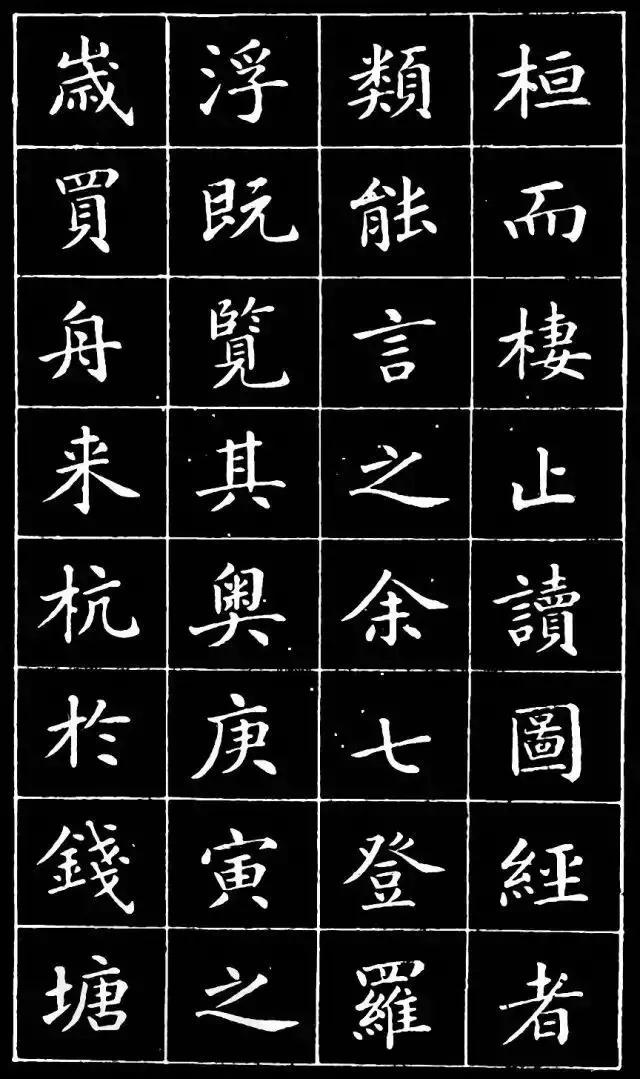 桓而棲止讀圖經者
類能言之余七登羅
浮既覽其奧庚寅之
歳買舟来杭於錢塘